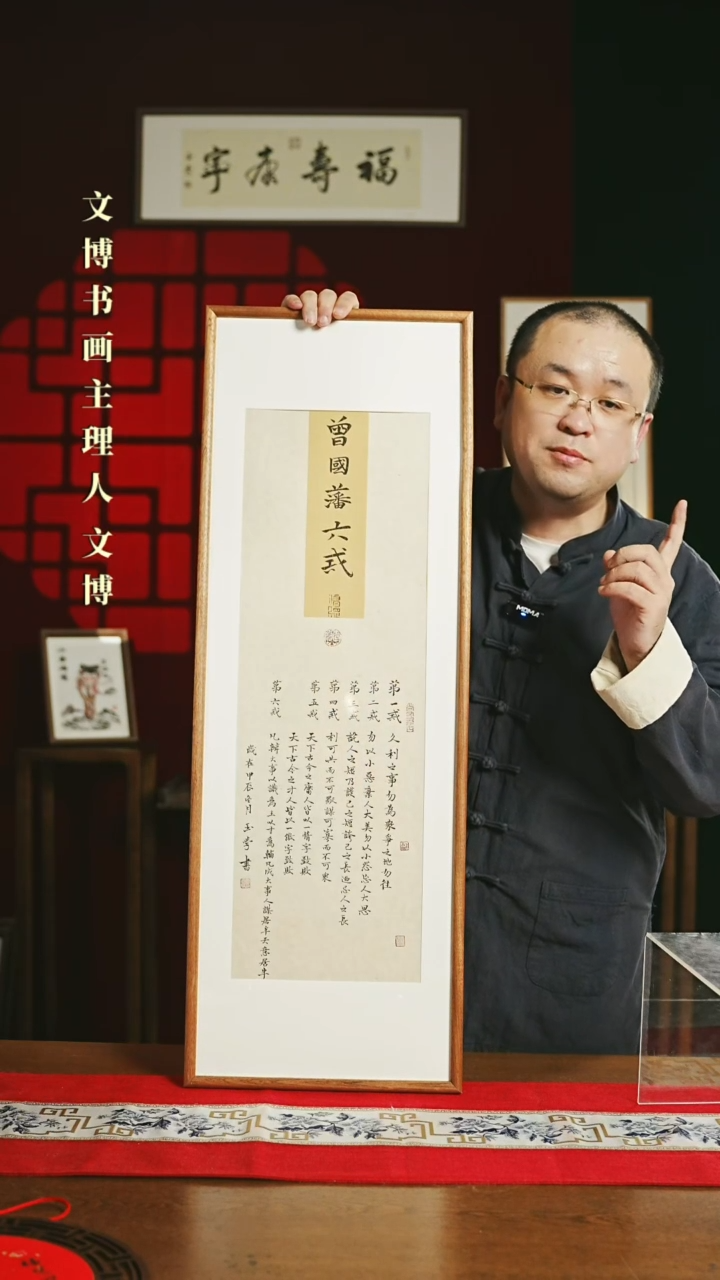 福壽康寧
文博书画主理人文博
曾國藩六戒
第一戒 久利之事勿為衆爭之地勿往
第二戒 勿以小惡棄人大美勿以小怨忘人大恩
第三戒 說人之短乃護己之短誇己之長乃忌人之長
第四戒 利可共而不可獨謀可寡而不可衆
第五戒 天下古今之庸人皆以一惰字致敗
天下古今之才人皆以一傲字致敗
第六戒 凡辦大事以識為主以才為輔凡成大事人謀居半天意居半
歲在甲辰冬月 書
MOMA